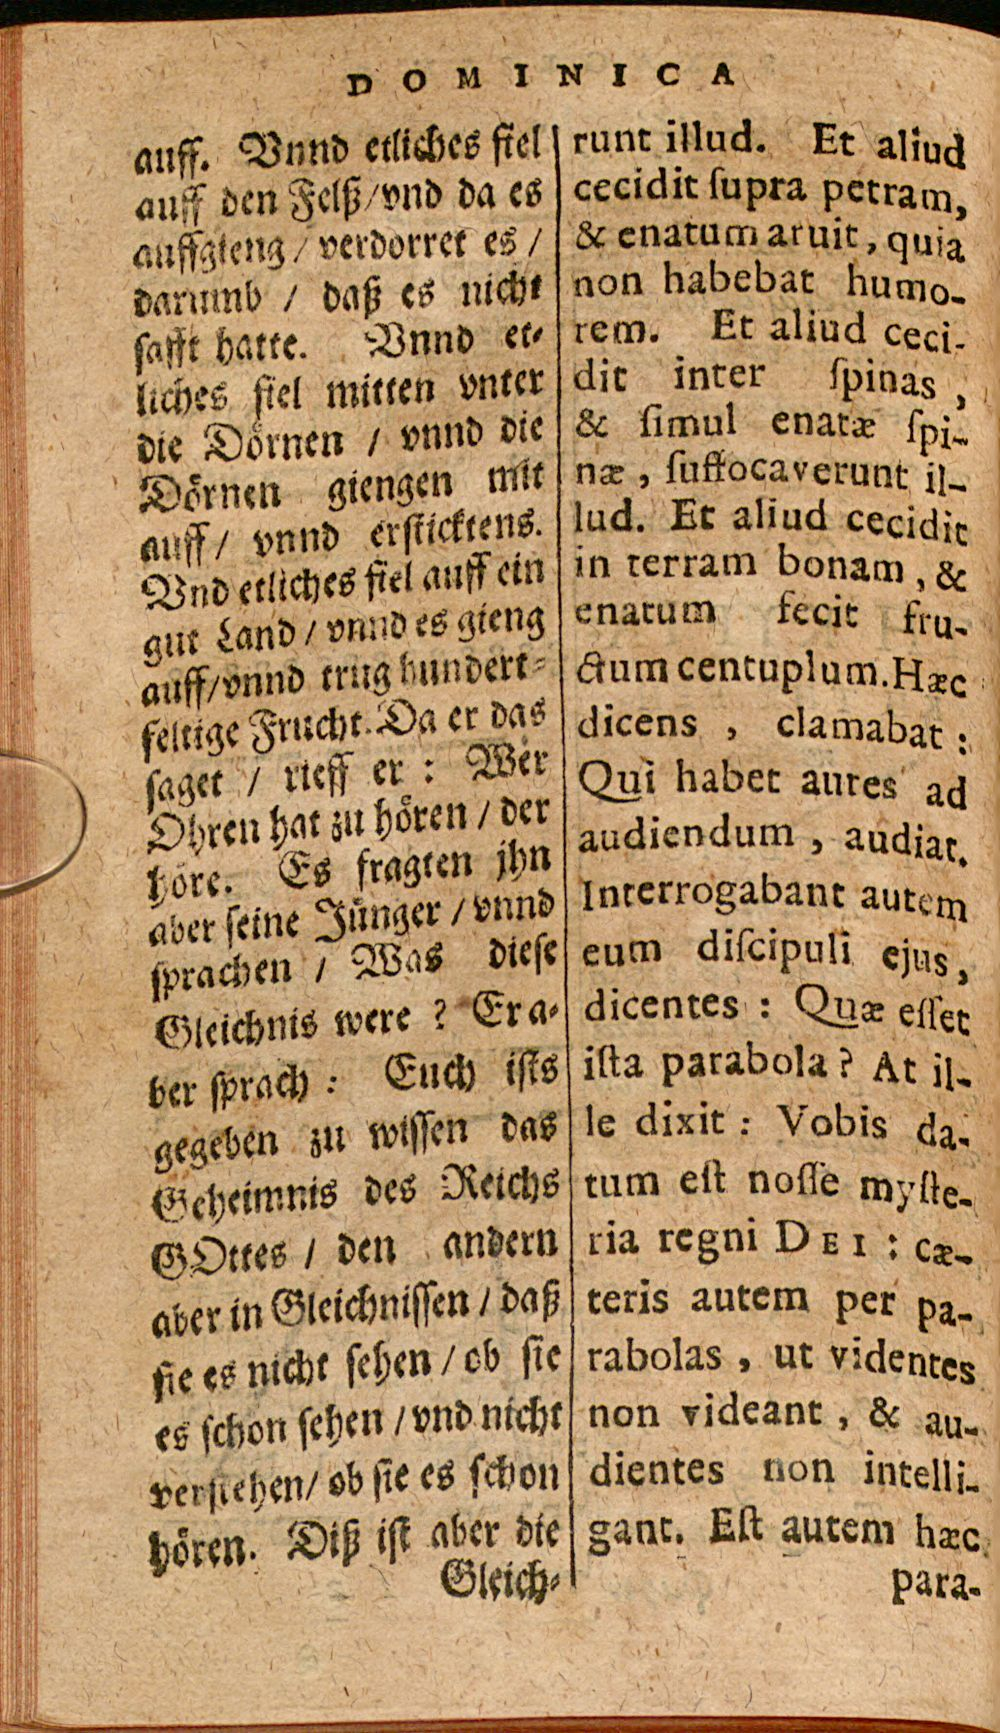 DOMINICA
auff. Vnnd etliches fiel
auff den Felß/vnd da es
auffgieng / verdorret es /
darumb / daß es nicht
safft hatte. Vnnd et-
liches fiel mitten vnter
die Dörnen / vnnd die
Dörnen giengen mit
auff / vnnd ersticktens.
Vnd etliches fiel auff ein
gut Land / vnnd es gieng
auff/vnnd trug hundert-
feltige Frucht. Da er das
saget / rieff er : Wer
Ohren hat zu hören / der
höre. Es fragten jhn
aber seine Jünger / vnnd
sprachen / Was diese
Gleichnis were ? Er a-
ber sprach : Euch ists
gegeben zu wissen das
Geheimnis des Reichs
GOttes / den andern
aber in Gleichnissen / daß
sie es nicht sehen / ob sie
es schon sehen / vnd nicht
verstehen/ ob sie es schon
hören. Diß ist aber die
Gleich-
runt illud. Et aliud
cecidit ſupra petram,
& enatum aruit, quia
non habebat humo-
rem. Et aliud ceci-
dit inter ſpinas,
& ſimul enatæ ſpi-
næ, ſuffocaverunt il-
lud. Et aliud cecidit
in terram bonam, &
enatum fecit fru-
ctum centuplum. Hæc
dicens, clamabat:
Qui habet aures ad
audiendum, audiat.
Interrogabant autem
eum diſcipuli ejus,
dicentes: Quæ eſſet
iſta parabola? At il-
le dixit: Vobis da-
tum eſt noſſe myſte-
ria regni DEI: cæ-
teris autem per pa-
rabolas, ut videntes
non videant, & au-
dientes non intelli-
gant. Eſt autem hæc
para-